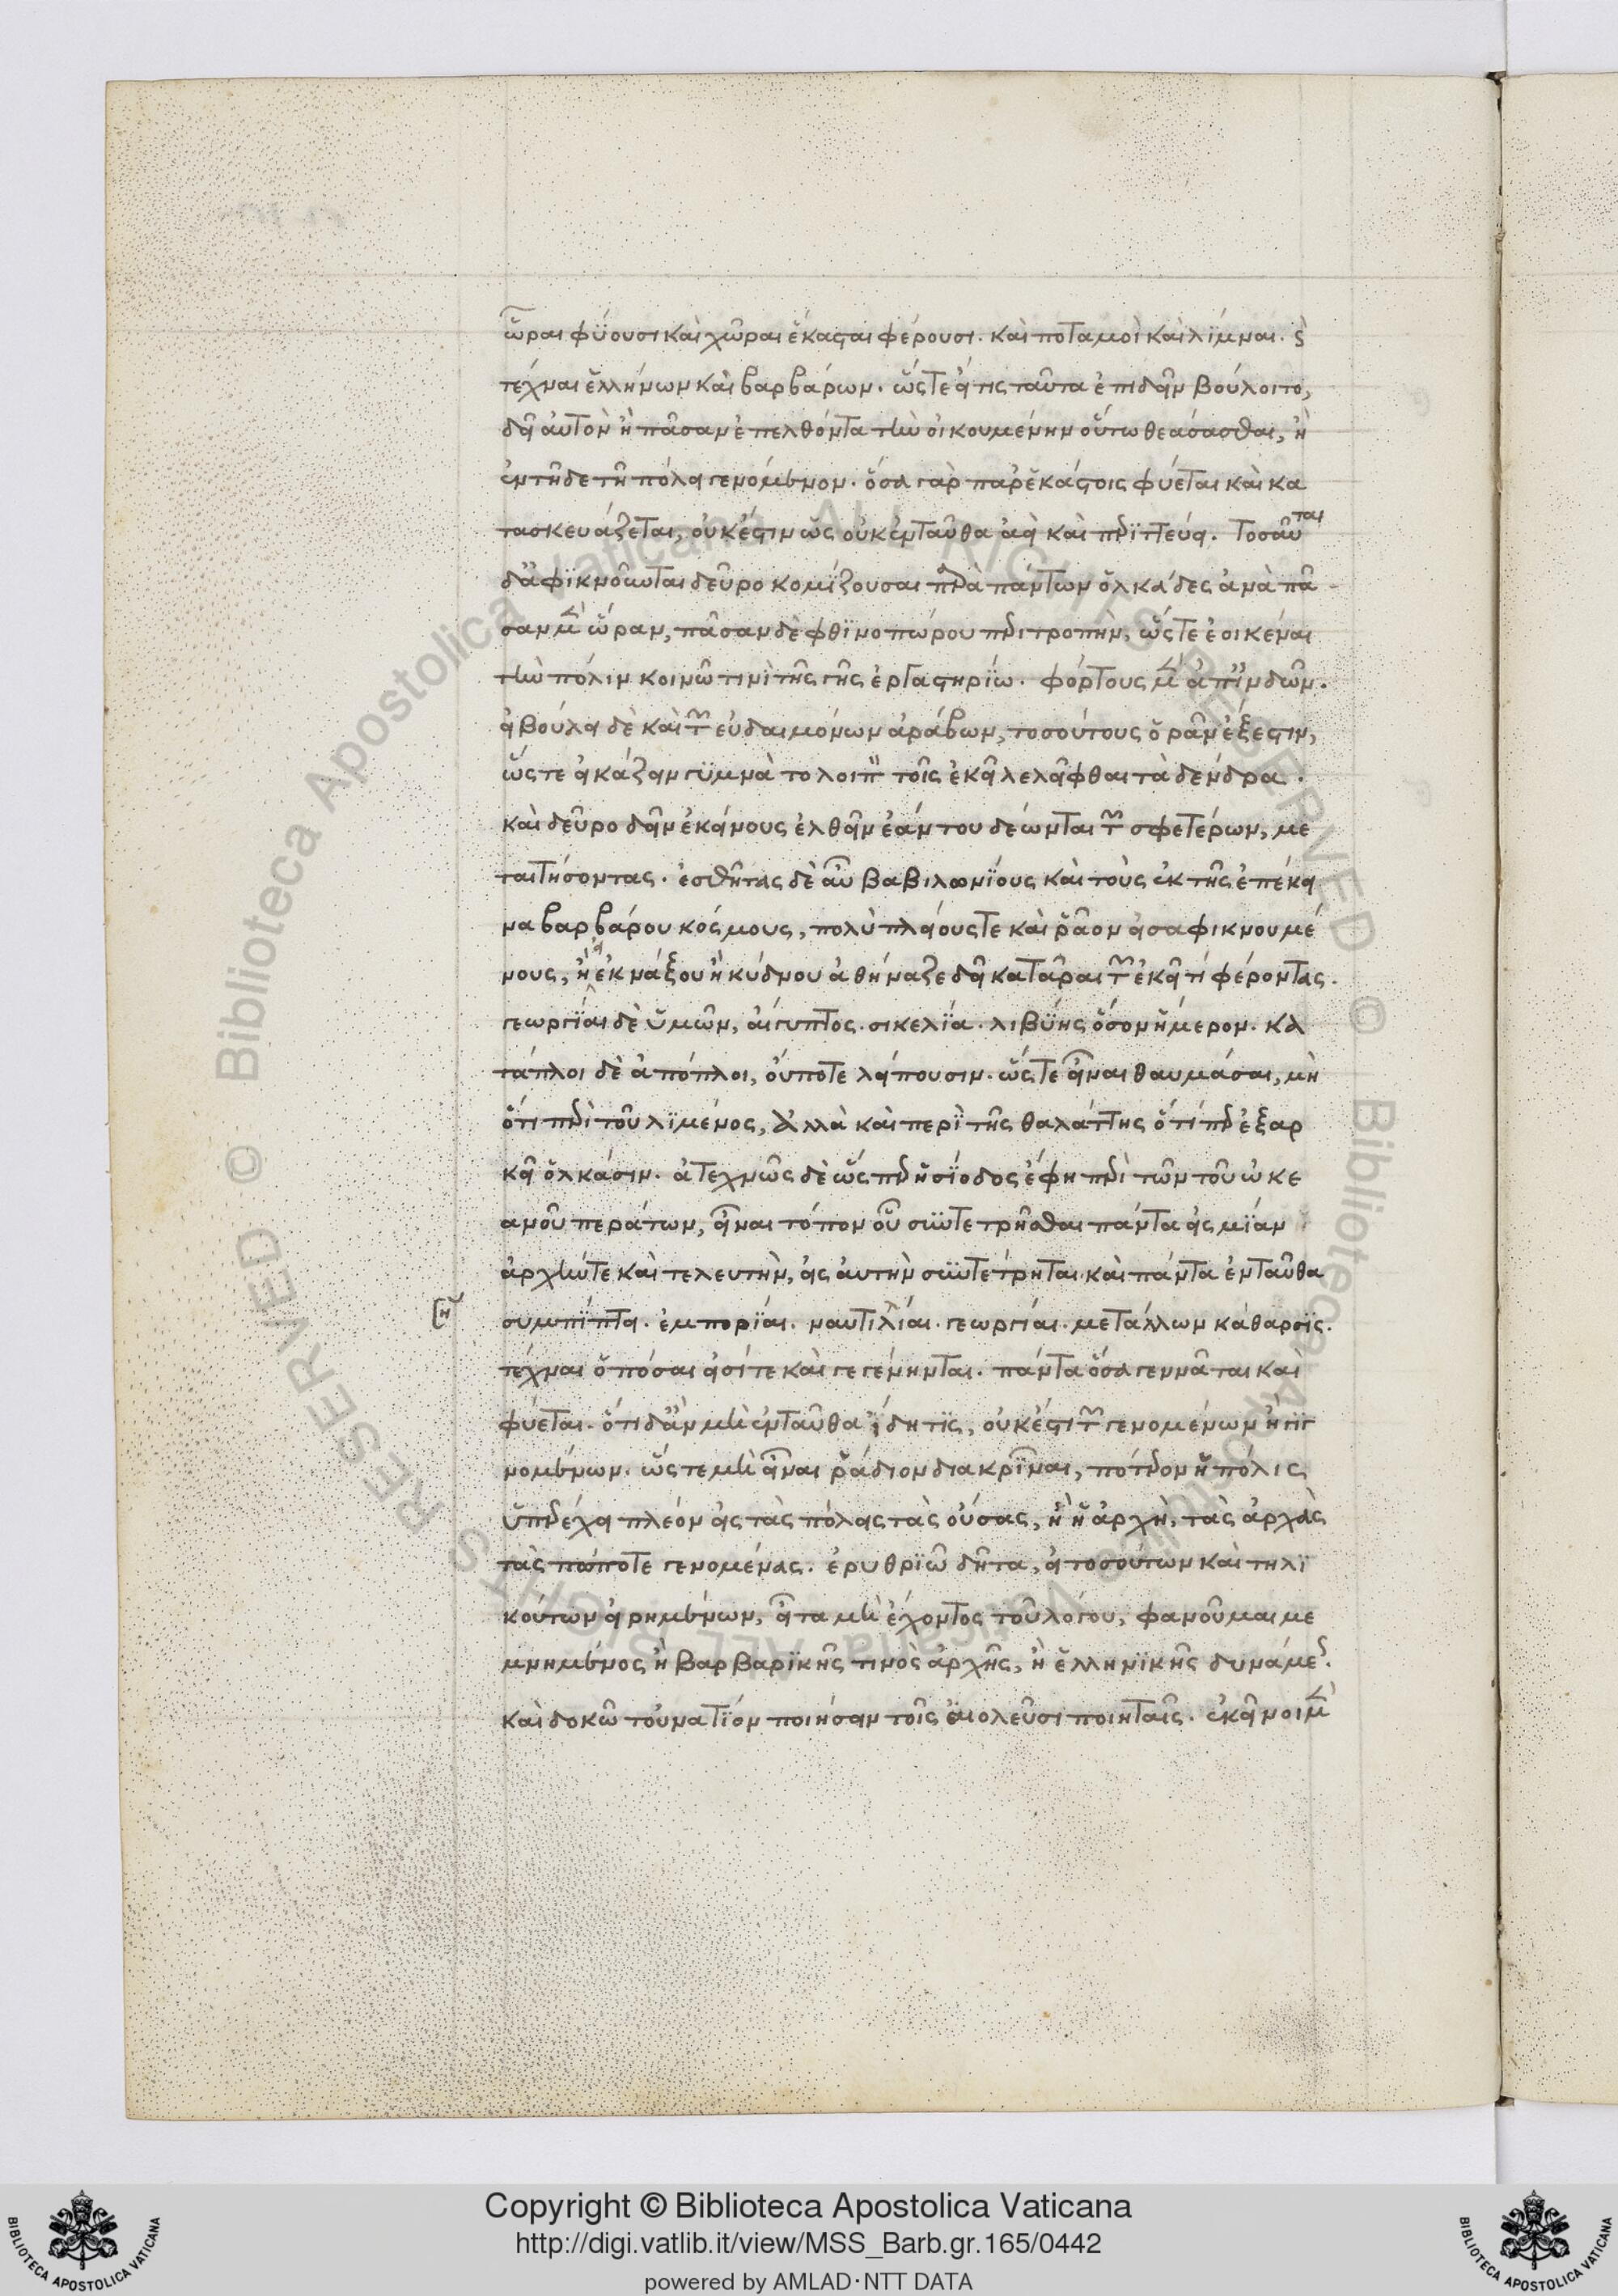 ὧραι φύουσι καὶ χῶραι ἕκασται φέρουσι. καὶ ποταμοὶ καὶ λίμναι. καὶ
τέχναι ἑλλήνων καὶ βαρβάρων. ὥστε εἴ τις ταῦτα ἐπιδεῖν βούλοιτο,
δεῖ αὐτὸν ἢ πᾶσαν ἐπελθόντα τὴν οἰκουμένην οὕτω θεάσασθαι, ἢ
ἐν τῇδε τῇ πόλει γενόμενον. ὅσα γὰρ παρ' ἑκάστοις φύεται καὶ κα
τασκευάζεται, οὐκ ἔστιν ὡς οὐκ ἐνταῦθα ἀεὶ καὶ περιττεύει. Τοσαῦται
δ' ἀφικνοῦνται δεῦρο κομίζουσαι παρὰ πάντων ὁλκάδες ἀνὰ πᾶ
σαν μὲν ὥραν, πᾶσαν δὲ φθινοπώρου περιτροπὴν, ὥστε ἐοικέναι
τὴν πόλιν κοινῷ τινὶ τῆς γῆς ἐργαστηρίῳ. φόρτους μὲν ἀπ' ἰνδῶν.
εἰ βούλει δὲ καὶ τῶν εὐδαιμόνων ἀράβων, τοσούτους ὁρᾶν ἔξεστιν,
ὥστε εἰκάζειν γυμνὰ τολοιπὸν τοῖς ἐκεῖ λελεῖφθαι τὰ δένδρα.
καὶ δεῦρο δεῖν ἐκείνους ἐλθεῖν ἐάν του δέωνται τῶν σφετέρων, με
ταιτήσοντας. ἐσθῆτας δὲ αὖ βαβιλωνίους καὶ τοὺς ἐκ τῆς ἐπέκει
να βαρβάρου κόσμους, πολὺ πλείους τε καὶ ῥᾷον εἰσαφικνουμέ
νους, ἢ εἰ ἐκ νάξου ἢ κύδνου ἀθήναζε δεῖ κατᾶραι τῶν ἐκεῖ τί φέροντας.
γεωργίαι δὲ ὑμῶν, αἴγυπτος. σικελία. λιβύης ὅσον ἥμερον. κα
τάπλοι δὲ ἀπόπλοι, οὔποτε λείπουσιν. ὥστε εἶναι θαυμάσαι, μὴ
ὅτι περὶ τοῦ λιμένος, ἀλλὰ καὶ περὶ τῆς θαλάττης ὅτί περ ἐξαρ
κεῖ ὁλκάσιν. ἀτεχνῶς δὲ ὥσπερ ἡσίοδος ἔφη περὶ τῶν τοῦ ὠκε
ανοῦ περάτων, εἶναι τόπον οὗ συντετρῆσθαι πάντα εἰς μίαν
ἀρχήν τε καὶ τελευτὴν, εἰς αὐτὴν συντέτρηται καὶ πάντα ἐνταῦθα
συμπίπτει. ἐμπορίαι. ναυτιλίαι. γεωργίαι. μετάλλων κάθαρσις.
τέχναι ὁπόσαι εἰσί τε καὶ γεγένηνται. πάντα ὅσα γεννᾶται καὶ
φύεται. ὅτι δ' ἂν μὴ ἐνταῦθα ἴδῃ τὶς, οὐκ ἔστι τῶν γενομένων ἢ γιγ
νομένων. ὥστε μὴ εἶναι ῥάδιον διακρῖναι, πότερον ἡ πόλις
ὑπερέχει πλέον εἰς τὰς πόλεις τὰς οὔσας, ἢ ἡ ἀρχὴ, τὰς ἀρχὰς
τὰς πώποτε γενομένας. ἐρυθριῶ δῆτα, εἰ τοσούτων καὶ τηλι
κούτων εἰρημένων, εἶτα μὴ ἔχοντος τοῦ λόγου, φανοῦμαι με
μνημένος ἢ βαρβαρικῆς τινὸς ἀρχῆς, ἢ ἑλληνικῆς δυνάμεως.
καὶ δοκῶ τοὐναντίον ποιήσειν τοῖς αἰολεῦσι ποιηταῖς. ἐκεῖνοι μὲν